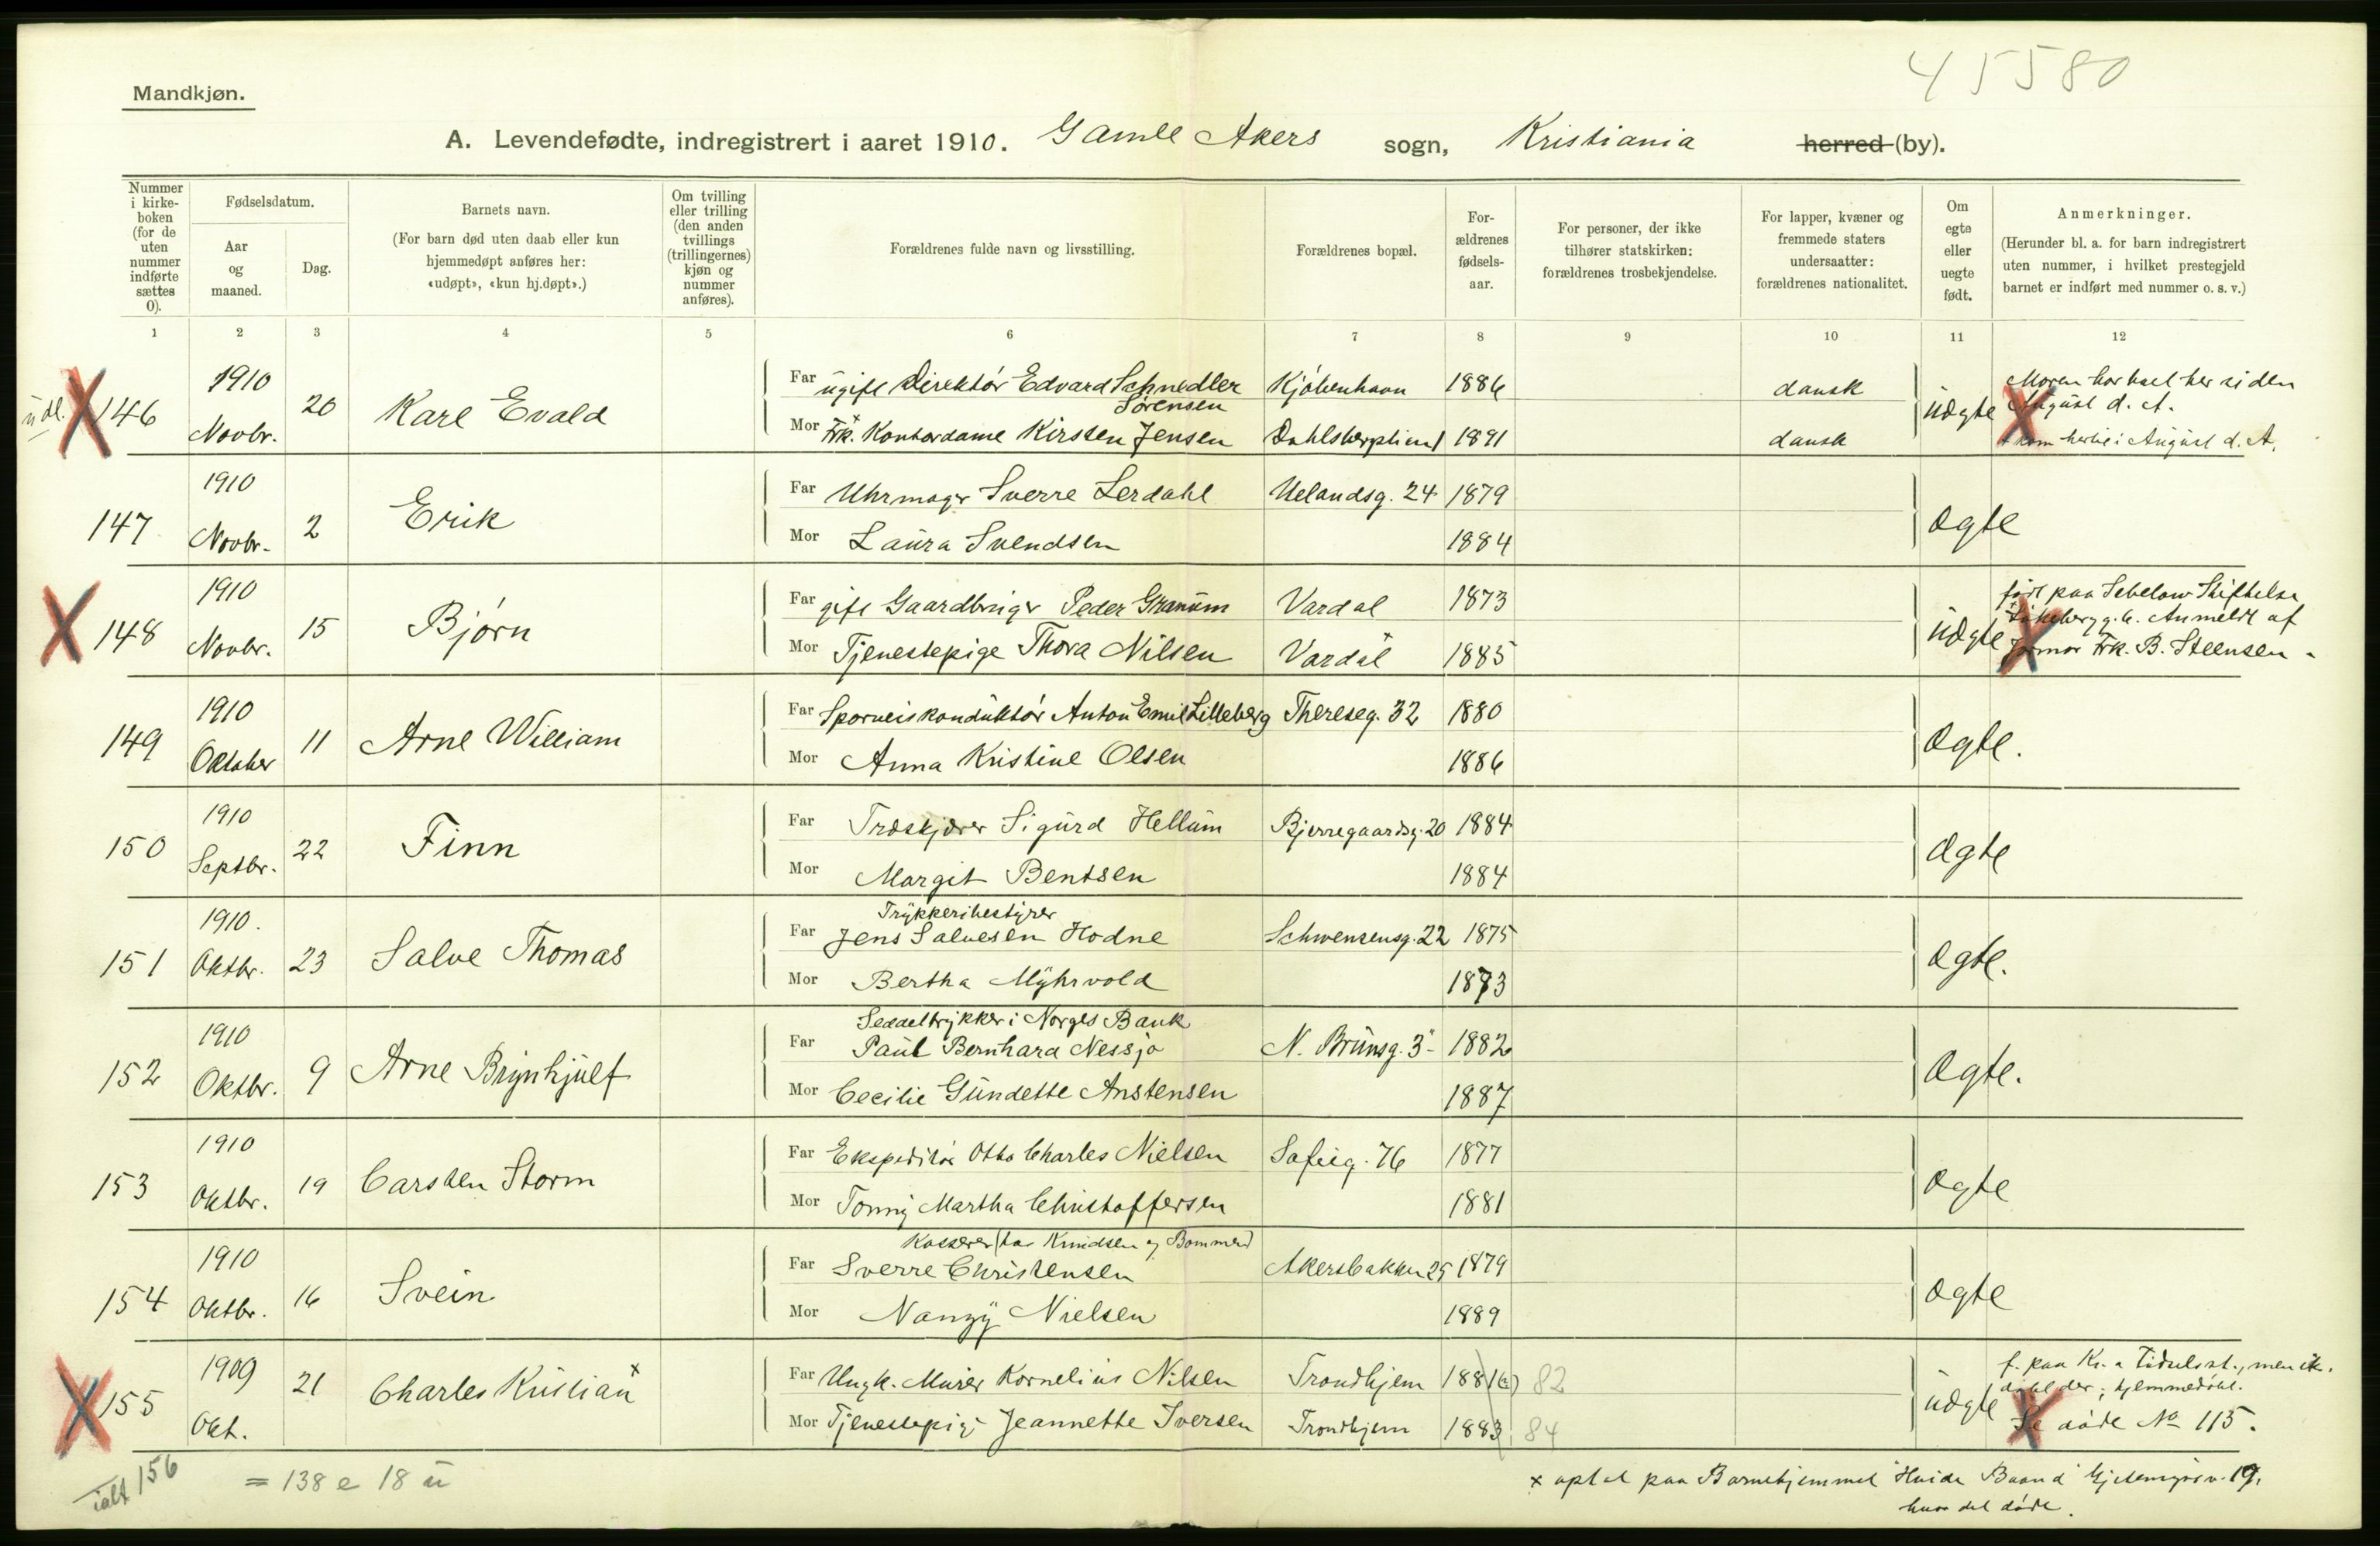 45580
Mandkjøn.
A. Levendefødte, indregistrert i aaret 1910. Gamle Akers sogn, Kristiania herred (by).
Nummer i kirke-boken (for de uten nummer indførte sættes 0).
Fødselsdatum.
Aar og maaned.
Dag.
Barnets navn.
(For barn død uten daab eller kun hjemmedøpt anføres her: «udøpt», «kun hj.døpt».)
Om tvilling eller trilling (den anden tvillings (trillingernes) kjøn og nummer anføres).
Forældrenes fulde navn og livsstilling.
Forældrenes bopæl.
For-ældrenes fødsels-aar.
For personer, der ikke tilhører statskirken: forældrenes trosbekjendelse.
For lapper, kvæner og fremmede staters undersaatter: forældrenes nationalitet.
Om egte eller uegte født.
Anmerkninger.
(Herunder bl. a. for barn indregistrert uten nummer, i hvilket prestegjeld barnet er indført med nummer o. s. v.)
1 2 3 4 5 6 7 8 9 10 11 12
udl. 146 1910 Novbr. 20 Karl Evald
Far ugift Direktør Edvard Schnedler Sørensen Kjøbenhavn 1886 dansk
Mor Frk. Kontordame Kirsten Jensen 1891 dansk
uægte Moren har boet her siden August d. A.
kom hertil i August d. A.
147 1910 Novbr. 2 Erik
Far Uhrmager Sverre Lerdahl Uelandsg. 24 1879
Mor Laura Svendsen 1884
ægte
148 1910 Novbr. 15 Bjørn
Far gift Gaardbruger Peder Granum Vardal 1873
Mor Tjenestepige Thora Nilsen Vardal 1885
uægte født paa Sebelows Stiftelse
Anmeldt af
Jormor Frk. B. Steensen
149 1910 Oktober 11 Arne William
Far Sporveiskonduktør Anton Emil Lilleberg Thereseg. 32 1880
Mor Anna Kristine Olsen 1886
ægte.
150 1910 Septbr. 22 Finn
Far Træskjærer Sigurd Hellum Bjerregaardsg. 20 1884
Mor Margit Bentsen 1884
ægte
151 1910. Oktbr. 23 Salve Thomas
Trykkeribestyrer
Far Jens Salvesen Hodne Schwensensg. 22 1875
Mor Bertha Myhrvold 1873
ægte.
152 1910 Oktbr. 9 Arne Brynhjulf
Seddeltrykker i Norges Bank
Far Paul Bernhard Nessjø N. Brunsg. 3 1882
Mor Cecilie Gundette Anstensen 1887
ægte.
153 1910 Oktbr. 19 Carsten Storm
Far Ekspeditør Otto Charles Nielsen Sofieg. 76 1877
Mor Tonny Martha Christoffersen 1881
ægte
154 1910 Oktbr. 16 Svein
Kasserer (hos Knudsen og Bommen)
Far Sverre Christensen Akersbakken 25 1879
Mor Nanzy Nielsen 1889
ægte
155 1909 Okt. 21 Charles Kristian x
Far Ungk. Murer Kornelius Nilsen Trondhjem 1881 82
Mor Tjenestepige Jeannette Iversen Trondhjem 1883 84
uægte f. paa Kr.a Fødselsst., men ik.
døbt der; hjemmedøbt.
Se døde No 115.
ialt 156 = 138 e 18 u
x optat paa Barnehjemmet Hvide Baand 19,
hvor det døde.